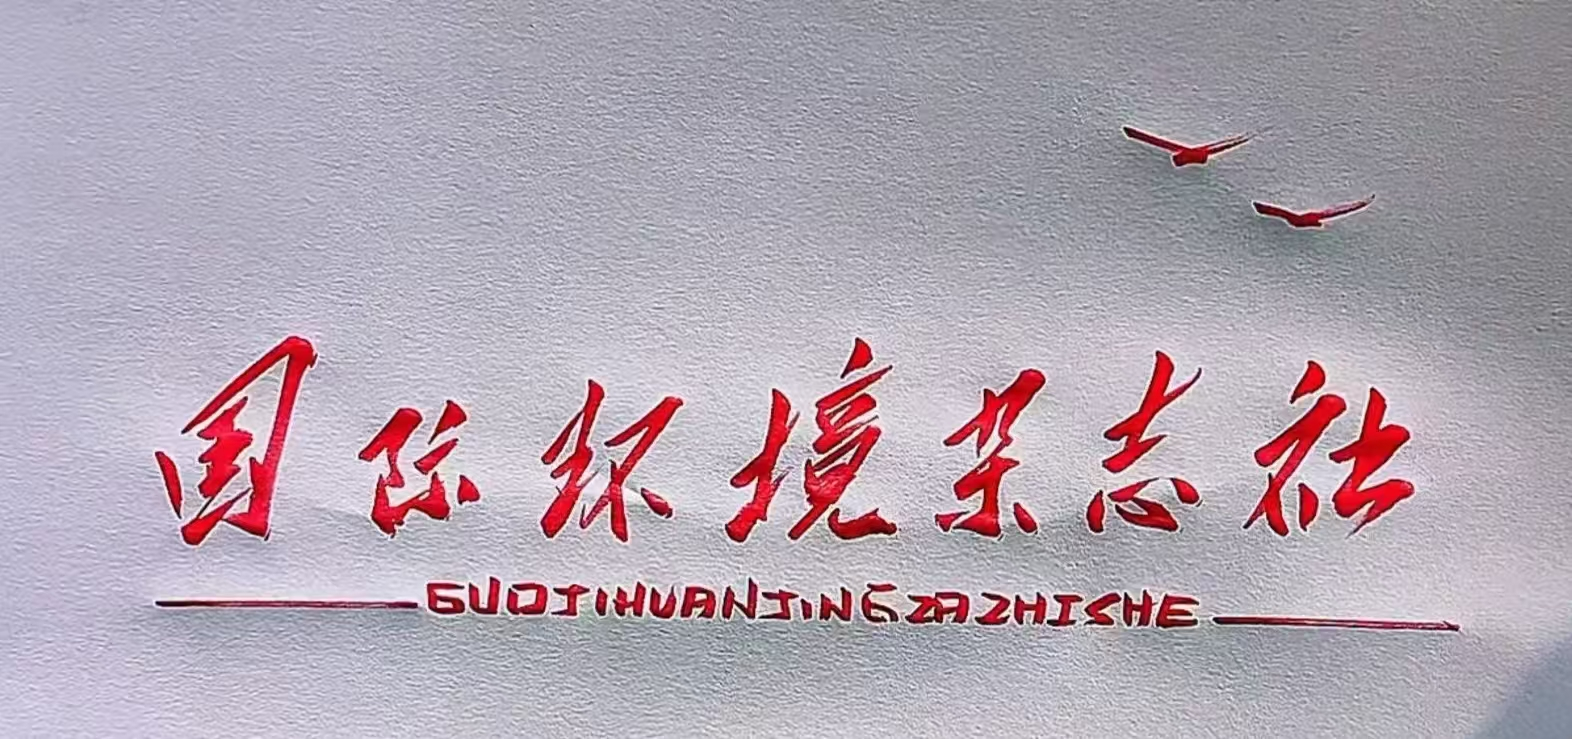 国际环境杂志社
GUOJIHUANJINGZAZHISHE